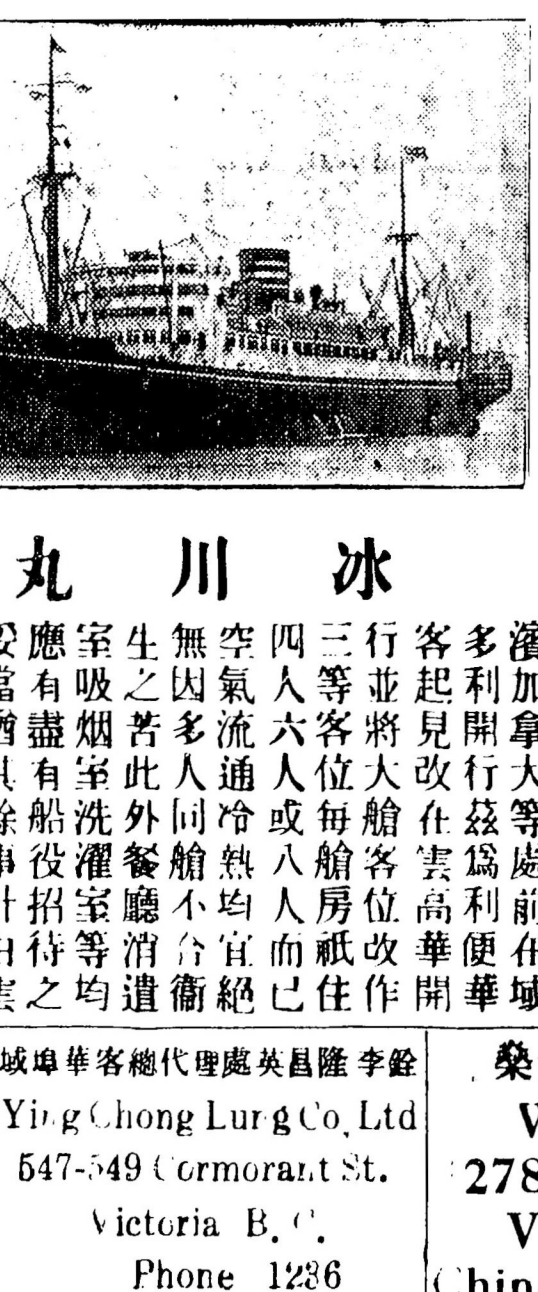 冰川丸
濱加拿大等處前在域
多利開行茲爲利便華
客起見改在雲高華開
行並將大艙客位改作
三等客位每艙房祇住
四人六人或八人而已
空氣流通冷熱均宜絕
無因多人同艙不合衞
生之苦此外餐廳消遣
室吸烟室洗濯室等均
應有盡有船役招待之
域埠華客總代理處英昌隆李銓
Ying Chong Lung Co, Ltd
547-549 Cormorant St.
Victoria B. C.
Phone 1236
278
Chin